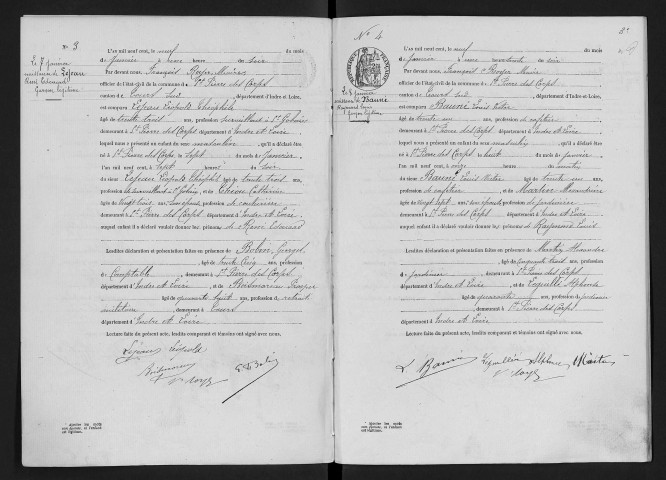 N° 3
Le 7 Janvier
naissance de Lejeau
René Edouard
Garçon légitime
L'AN mil neuf cent, le neuf du mois
de Janvier à une heure du soir
Par devant nous, François Royer Maire
officier de l'état-civil de la commune de St Pierre des Corps
canton de Tours Sud, département d'Indre-et-Loire,
est comparu Lejeau Léopold Théophile
âgé de trente trois ans, profession
demeurant à St Pierre des Corps département d'Indre et Loire
lequel nous a présenté un enfant du sexe masculin, qu'il a déclaré être
né à St Pierre des Corps le sept du mois de Janvier
à sept heures du soir
du sieur Lejeau Léopold Théophile âgé de trente trois ans,
profession de et de Catherine
âgée de vingt trois ans, son épouse, profession de couturière
demeurant à St Pierre des Corps département d'Indre et Loire
auquel enfant il a déclaré vouloir donner les prénoms de René Edouard
Lesdites déclaration et présentation faites en présence de
âgé de trente cinq ans, profession
de Comptable, demeurant à St Pierre des Corps
département d'Indre et Loire, et de
âgé de quarante huit ans, profession de retraité
militaire, demeurant à Tours
département d'Indre et Loire
Lecture faite du présent acte, lesdits comparant et témoins ont signé avec nous.
Lejeau Léopold
Fr Royer
* Ajouter les mots
son épouse, si l'enfant
est légitime.
N° 4
8
Le 8 Janvier
naissance de Bauné
Raymond Louis
Garçon légitime
L'AN mil neuf cent, le neuf du mois
de Janvier à une heure trente du soir
Par devant nous, François Royer Maire
officier de l'état-civil de la commune de St Pierre des Corps
canton de Tours Sud, département d'Indre-et-Loire,
est comparu Bauné Louis Victor
âgé de trente un ans, profession de cafetier
demeurant à St Pierre des Corps département d'Indre et Loire
lequel nous a présenté un enfant du sexe masculin, qu'il a déclaré être
né à St Pierre des Corps le huit du mois de Janvier
à onze heures du matin
du sieur Bauné Louis Victor âgé de trente un ans,
profession de cafetier et de
âgée de vingt sept ans, son épouse, profession de
demeurant à St Pierre des Corps département d'Indre et Loire
auquel enfant il a déclaré vouloir donner les prénoms de Raymond Louis
Lesdites déclaration et présentation faites en présence de Alexandre
âgé de cinquante trois ans, profession
de jardinier, demeurant à St Pierre des Corps
département d'Indre et Loire, et de Alphonse
âgé de quarante ans, profession de jardinier
demeurant à St Pierre des Corps
département d'Indre et Loire
Lecture faite du présent acte, lesdits comparant et témoins ont signé avec nous.
L. Bauné Alphonse
Fr Royer
* Ajouter les mots
son épouse, si l'enfant
est légitime.